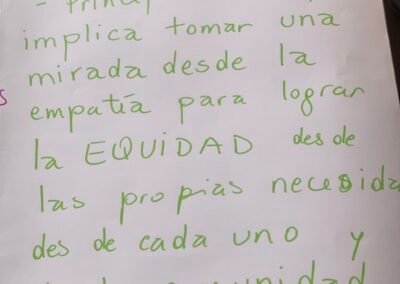 implica tomar una
mirada desde la
empatía para lograr
la EQUIDAD desde
las propias necesida
des de cada uno y